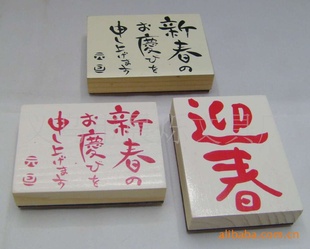 新春の
お慶びを
申し上げます
元旦
新春の
お慶びを
申し上げます
元旦
迎
春
alibaba.com.cn